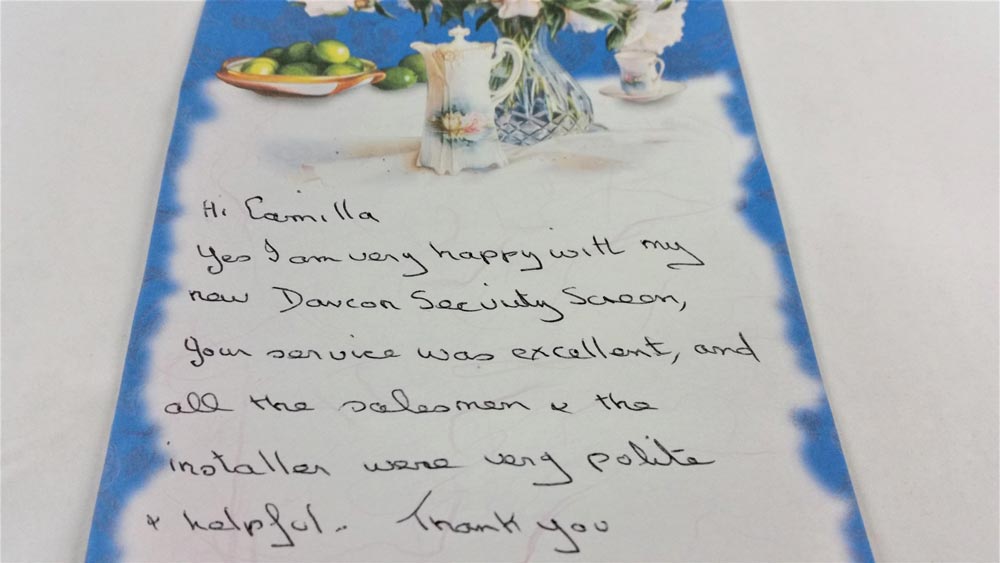 Hi Camilla
Yes I am very happy with my
new Davcon Security Screen,
Your service was excellent, and
all the salesmen & the
installer were very polite
& helpful.. Thank you